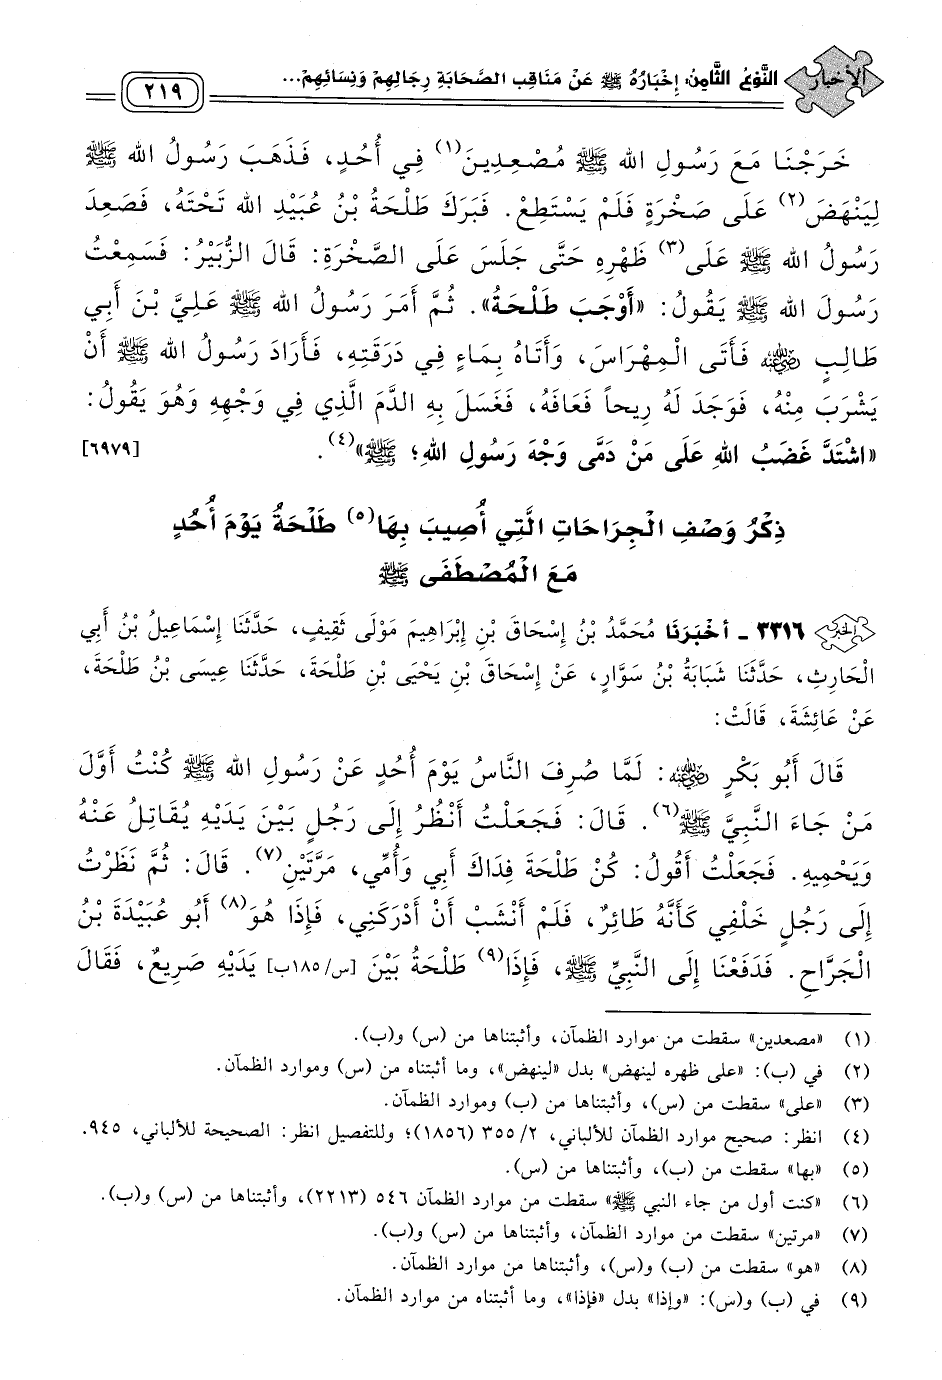 الأخبار
النَّوْعُ الثَّامِنُ: إِخْبَارُهُ ﷺ عَنْ مَنَاقِبِ الصَّحَابَةِ رِجَالِهِمْ وَنِسَائِهِمْ...
٢١٩
خَرَجْنَا مَعَ رَسُولِ الله ﷺ مُصْعِدِينَ(١) فِي أُحُدٍ، فَذَهَبَ رَسُولُ الله ﷺ
لِيَنْهَضَ(٢) عَلَى صَخْرَةٍ فَلَمْ يَسْتَطِعْ. فَبَرَكَ طَلْحَةُ بْنُ عُبَيْدِ الله تَحْتَهُ، فَصَعِدَ
رَسُولُ الله ﷺ عَلَى(٣) ظَهْرِهِ حَتَّى جَلَسَ عَلَى الصَّخْرَةِ: قَالَ الزُّبَيْرُ: فَسَمِعْتُ
رَسُولَ الله ﷺ يَقُولُ: «أَوْجَبَ طَلْحَةُ». ثُمَّ أَمَرَ رَسُولُ الله ﷺ عَلِيَّ بْنَ أَبِي
طَالِبٍ رضي الله عنه فَأَتَى الْمِهْرَاسَ، وَأَتَاهُ بِمَاءٍ فِي دَرَقَتِهِ، فَأَرَادَ رَسُولُ الله ﷺ أَنْ
يَشْرَبَ مِنْهُ، فَوَجَدَ لَهُ رِيحاً فَعَافَهُ، فَغَسَلَ بِهِ الدَّمَ الَّذِي فِي وَجْهِهِ وَهُوَ يَقُولُ:
«اشْتَدَّ غَضَبُ اللهِ عَلَى مَنْ دَمَّى وَجْهَ رَسُولِ اللهِ؛ ﷺ»(٤). [٦٩٧٩]
ذِكْرُ وَصْفِ الْجِرَاحَاتِ الَّتِي أُصِيبَ بِهَا(٥) طَلْحَةُ يَوْمَ أُحُدٍ
مَعَ الْمُصْطَفَى ﷺ
الخبر ٣٣١٦ - أَخْبَرَنَا مُحَمَّدُ بْنُ إِسْحَاقَ بْنِ إِبْرَاهِيمَ مَوْلَى ثَقِيفٍ، حَدَّثَنَا إِسْمَاعِيلُ بْنُ أَبِي
الْحَارِثِ، حَدَّثَنَا شَبَابَةُ بْنُ سَوَّارٍ، عَنْ إِسْحَاقَ بْنِ يَحْيَى بْنِ طَلْحَةَ، حَدَّثَنَا عِيسَى بْنُ طَلْحَةَ،
عَنْ عَائِشَةَ، قَالَتْ:
قَالَ أَبُو بَكْرٍ رضي الله عنه: لَمَّا صُرِفَ النَّاسُ يَوْمَ أُحُدٍ عَنْ رَسُولِ الله ﷺ كُنْتُ أَوَّلَ
مَنْ جَاءَ النَّبِيَّ ﷺ(٦). قَالَ: فَجَعَلْتُ أَنْظُرُ إِلَى رَجُلٍ بَيْنَ يَدَيْهِ يُقَاتِلُ عَنْهُ
وَيَحْمِيهِ. فَجَعَلْتُ أَقُولُ: كُنْ طَلْحَةَ فِدَاكَ أَبِي وَأُمِّي، مَرَّتَيْنِ(٧). قَالَ: ثُمَّ نَظَرْتُ
إِلَى رَجُلٍ خَلْفِي كَأَنَّهُ طَائِرٌ، فَلَمْ أَنْشَبْ أَنْ أَدْرَكَنِي، فَإِذَا هُوَ(٨) أَبُو عُبَيْدَةَ بْنُ
الْجَرَّاحِ. فَدَفَعْنَا إِلَى النَّبِيِّ ﷺ، فَإِذَا(٩) طَلْحَةُ بَيْنَ [س/١٨٥ب] يَدَيْهِ صَرِيعٌ، فَقَالَ
(١) «مصعدين» سقطت من موارد الظمآن، وأثبتناها من (س) و(ب).
(٢) في (ب): «على ظهره لينهض» بدل «لينهض»، وما أثبتناه من (س) وموارد الظمآن.
(٣) «على» سقطت من (س)، وأثبتناها من (ب) وموارد الظمآن.
(٤) انظر: صحيح موارد الظمآن للألباني، ٢/ ٣٥٥ (١٨٥٦)؛ وللتفصيل انظر: الصحيحة للألباني، ٩٤٥.
(٥) «بها» سقطت من (ب)، وأثبتناها من (س).
(٦) «كنت أول من جاء النبي ﷺ» سقطت من موارد الظمآن ٥٤٦ (٢٢١٣)، وأثبتناها من (س) و(ب).
(٧) «مرتين» سقطت من موارد الظمآن، وأثبتناها من (س) و(ب).
(٨) «هو» سقطت من (ب) و(س)، وأثبتناها من موارد الظمآن.
(٩) في (ب) و(س): «وإذا» بدل «فإذا»، وما أثبتناه من موارد الظمآن.